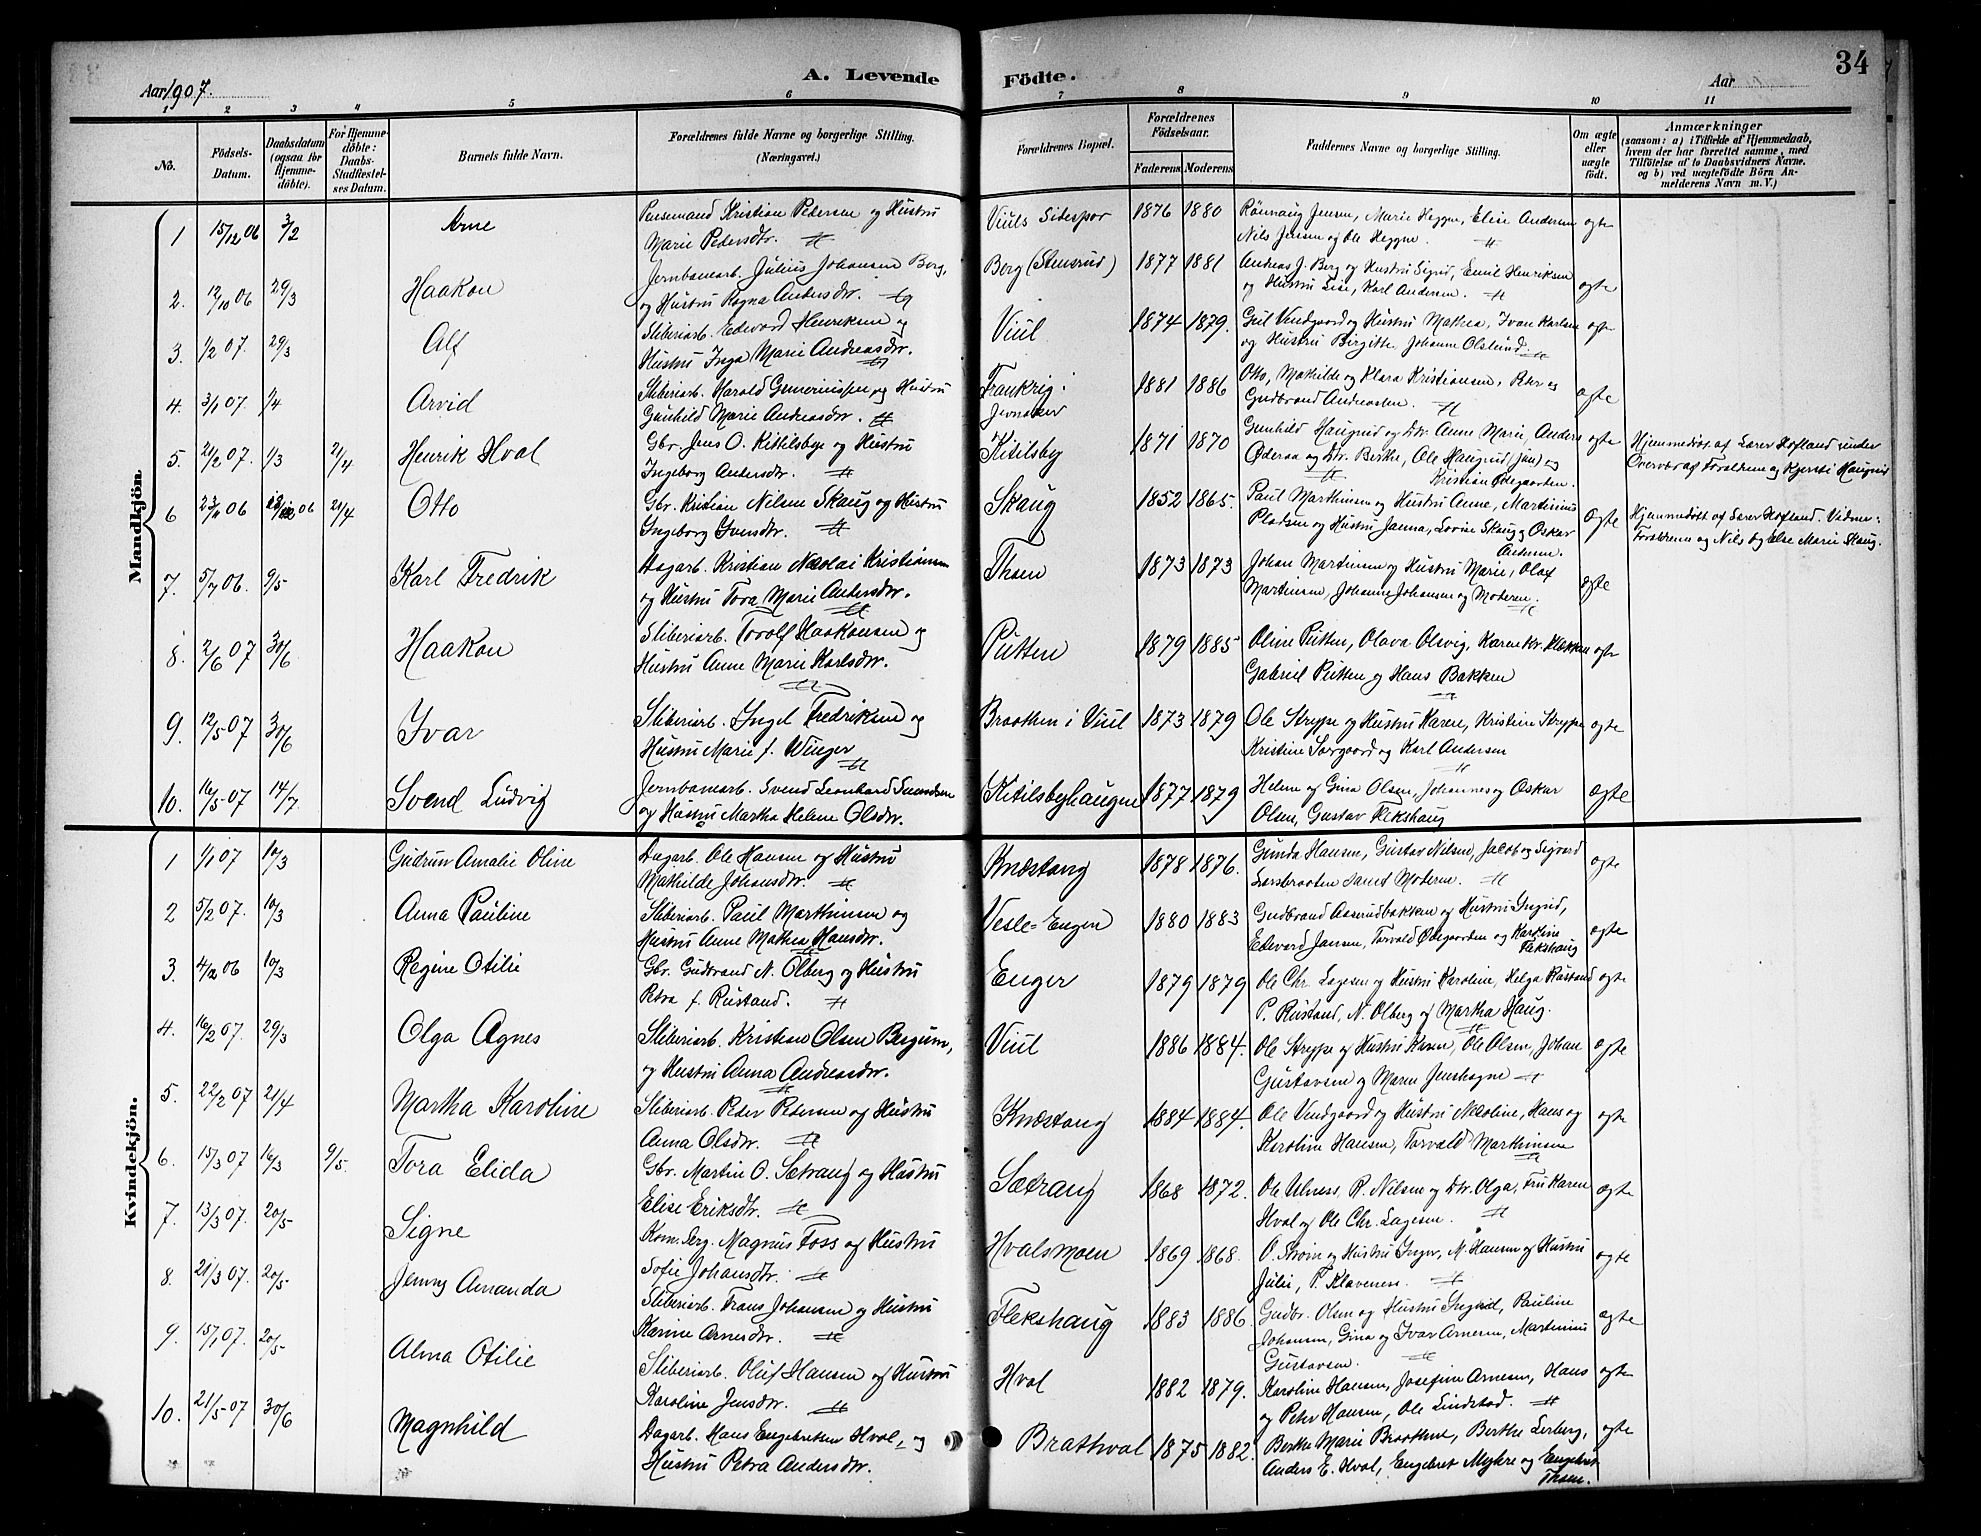 34
A. Levende Födte.
Aar 1907.
Aar
1 2 3 4 5 6 7 8 9 10 11
No.
Födsels-Datum.
Daabsdatum (ogsaa for Hjemme-döbte).
For Hjemme-döbte: Daabs-Stadfæstel-ses Datum.
Barnets fulde Navn.
Forældrenes fulde Navne og borgerlige Stilling. (Næringsvei.)
Forældrenes Bopæl.
Forældrenes Födselsaar.
Faderens Moderens
Faddernes Navne og borgerlige Stilling.
Om ægte eller uægte födt.
Anmærkninger
(saasom: a) i Tilfælde af Hjemmedaab,
hvem der har forrettet samme, med
Tilföielse af to Daabsvidners Navne.
og b) ved uægtefödte Börn An-
melderens Navn m. V.)
Mandkjön.
1 15/12 06 3/2 Arne
Kristian Pedersen og Hustru
Marie Pedersdtr.
Viuls Sidespor 1876 1880
Rönnaug Jensen, Marie Heggen, Elise Andersen
Nils Jensen og Ole Heggen. ægte
2. 12/10 06 29/3 Haakon
Jernbanearb. Julius Johansen Berg,
og Hustru Ragna Andersdtr.
Berg (Stenerud) 1877 1881
Andreas J. Berg og Hustru Sigrid, Emil Henriksen
og Hustru Lise, Karl Andersen. ægte
3. 1/2 07. 29/3 Alf
Sliberiarb. Edvard Henriksen og
Hustru Inga Marie Andreasdtr.
Viul 1874 1879.
Vendgaard og Hustru Mathea, Ivar Karlsen
og Hustru Birgitte, Johanne Olslund. ægte
4. 3/1 07. 1/4 Arvid
Sliberiarb. Harald og Hustru
Gunhild Marie Andreasdtr.
Frankrig i
Jevnaker 1881 1886
Otto, Mathilde og Klara Kristiansen, Peter og
Gudbrand Andreassen. ægte
5. 21/2 07. 1/3 21/4 Henrik Hval
Gbr. Jens O. Kittilsby og Hustru
Ingeborg Andersdtr.
Kitilsby 1871 1870
Gunhild Haugrud og Dtr. Anne Marie, Anders
Öderaa og Dtr. Berthe, Ole Haugrud (jun) og
Kristian Ödegaarden. ægte
Hjemmedöbt af Lærer Hofland under
Overvær af Forældrene og Kjersti Haugrud
6 23/11 06 06 21/4 Otto
Gbr. Kristian Nilsen Skaug og Hustru
Ingeborg Svensdtr.
Skaug 1852 1865.
Paul Marthinsen og Hustru Anne, Martinius
Pladsen og Hustru Janna, Lovise Skaug og Oskar
Andersen. ægte
Hjemmedöbt af Lærer Hofland. Vidner:
Forældrene og Nils og Else Marie Skaug.
7. 5/7 06. 9/5 Karl Fredrik
Dagarb. Kristian Nicolai Kristiansen
og Hustru Tora Marie Andersdtr.
Thoen 1873 1873
Johan Martinsen og Hustru Marie, Olaf
Martinsen, Johanne Johansen og Moderen. ægte
8. 2/6 07 30/6 Haakon
Sliberiarb. Torolf Haakonsen og
Hustru Anne Marie Karlsdtr.
Putten 1879 1885
Oline Putten, Olava Olsvig, Karen Kr. Klækken
Gabriel Putten og Hans Bakken ægte
9. 12/5 07 30/6 Ivar
Sliberiarb. Ingel Fredriksen og
Hustru Marie f. Winger
Braathen i Viul 1873 1879
Ole Strype og Hustru Karen, Kristine Strype
Kristine Sörgaard og Karl Andersen ægte
10. 16/5 07 14/7 Svend Ludvig
Jernbanearb. Svend Leonhard Svendsen
og Hustru Martha Helene Olsdtr.
Kitilsbyhaugen 1877 1879
Helene og Gina Olsen, Johannes og Oskar
Olsen, Gustav Flekshaug ægte
Kvindekjön.
1 1/1 07 10/3 Gudrun Amalie Oline
Dagarb. Ole Hansen og Hustru
Mathilde Johansdtr.
Knæstang 1878 1876.
Gunda Hansen, Gustav Nilsen, Jacob og Sigvard
Larsbraaten samt Moderen. ægte
2 5/2 07. 10/3 Anna Pauline
Sliberiarb. Paul Marthinsen og
Hustru Anne Mathea Hansdtr.
Vesle-Engen 1880 1883
Gudbrand Aaserudbakken og Hustru Ingrid,
Edevard Jansen, Torvald Ödegaarden og Karoline
Flekshaug ægte
3. 4/12 06 10/3 Regine Otilie
Gbr. Gudbrand N. Ölberg og Hustru
Petra f. Rustand.
Enger 1879 1879
Ole Chr. Lagesen og Hustru Karoline, Helga Rustand
P. Rustand, N. Olberg og Martha Haug. ægte
4. 16/2 07. 29/3 Olga Agnes
Sliberiarb. Kristian Olsen Bergum,
og Hustru Anna Andreasdtr.
Viul 1886 1884.
Ole Strype og Hustru Karen, Ole Olsen, Johan
Gustavsen og Maren Jenshagen ægte
5. 22/2 07 21/4 Martha Karoline
Sliberiarb. Peder Pedersen og Hustru
Anna Olsdtr.
Knæstang 1884 1884.
Ole Vendgaard og Hustru Nicoline, Hans og
Karoline Hansen, Torvald Marthinsen ægte
6. 15/3 07 16/3 9/5. Tora Elida
Gbr. Martin O. Sætrang og Hustru
Elise Eriksdtr.
Sætrang 1868 1872.
Ole Ulness, R. Nilsen og Dtr. Olga, Fru Karen
Hval og Ole Chr. Lagesen. ægte
7. 13/3 07. 20/5 Signe
Korn. Serg. Magnus Foss og Hustru
Sofie Johansdtr.
Hvalsmoen 1869 1868.
O. Thoen og Hustru Inger, M. Hansen og Hustru
Julie, T. Klavenes. ægte
8. 21/3 07. 20/5 Jenny Amanda
Sliberiarb. Frans Johansen og Hustru
Karine Arnesdtr.
Flekshaug 1883 1886.
Gudbr. Olsen og Hustru Ingrid, Pauline
Johansen, Gina og Ivar Arnesen, Martinius
Gustavsen. ægte
9. 15/1 07. 20/5 Alma Otilie
Sliberiarb. Oluf Hansen og Hustru
Karoline Jensdtr.
Hval 1882 1879.
Karoline Hansen, Josefine Arnesen, Hans
og Peter Hansen, Ole Lindstad. ægte
10. 21/5 07 30/6 Magnhild
Dagarb. Hans Engebretsen Hval, og
Hustru Petra Andersdtr.
Brathval 1875 1882.
Berthe Marie Braathen, Berthe Lerberg,
Anders E. Hval, Engebret Myhre og Engebret
Thoen. ægte